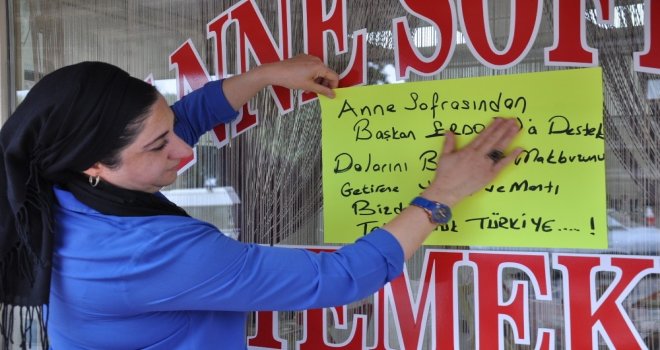 ANNE SOF
Anne Sofrasından
Başkan ERDOĞAN'a Destek
Dolarını B Makbuzunu
Getirene ve Mantı
Bizd
TÜRKİYE....!
YEMEK